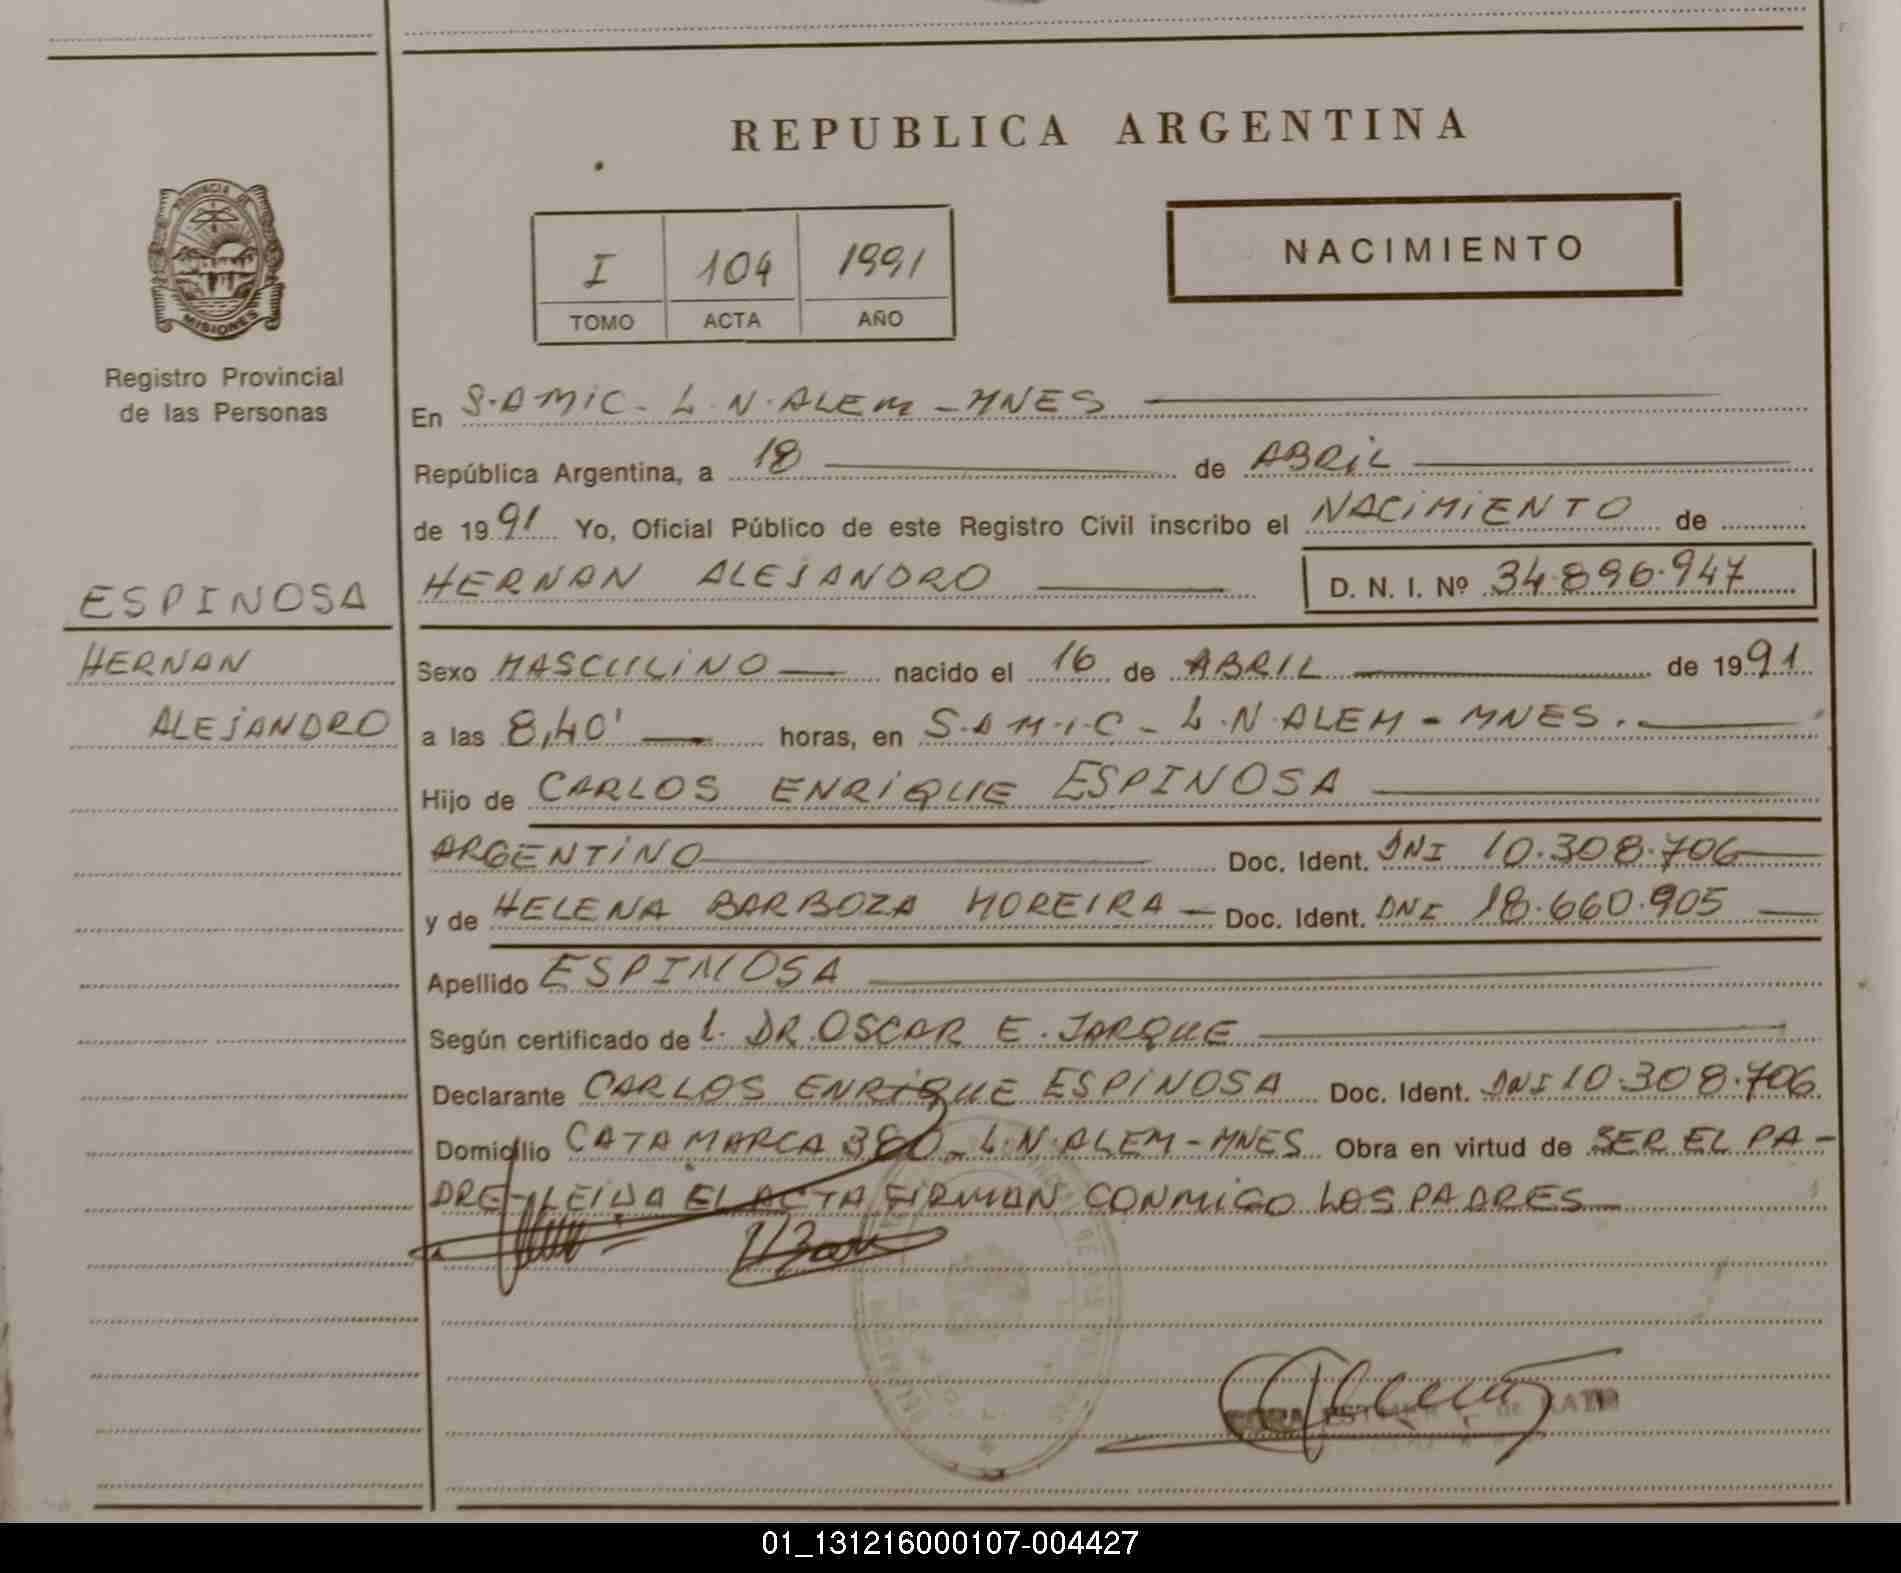 REPUBLICA ARGENTINA
PROVINCIA DE
MISIONES
Registro Provincial
de las Personas
I 104 1991
TOMO ACTA AÑO
NACIMIENTO
En S.AMIC. L.N.ALEM - MNES
República Argentina, a 18 de ABRIL
de 1991 Yo, Oficial Público de este Registro Civil inscribo el NACIMIENTO de
HERNAN ALEJANDRO D. N. I. Nº 34.896.947
ESPINOSA
HERNAN
ALEJANDRO
Sexo MASCULINO nacido el 16 de ABRIL de 1991
a las 8,40' horas, en S.A.M.I.C - L.N.ALEM - MNES.
Hijo de CARLOS ENRIQUE ESPINOSA
ARGENTINO Doc. Ident. DNI 10.308.706
y de HELENA BARBOZA MOREIRA - Doc. Ident. DNI 18.660.905
Apellido ESPINOSA
Según certificado de L. DR.OSCAR E. JARQUE
Declarante CARLOS ENRIQUE ESPINOSA Doc. Ident. DNI 10.308.706
Domicilio CATAMARCA 380 - L.N.ALEM - MNES Obra en virtud de SER EL PA-
DRE - LEIDA EL ACTA FIRMAN CONMIGO LOS PADRES
01_131216000107-004427